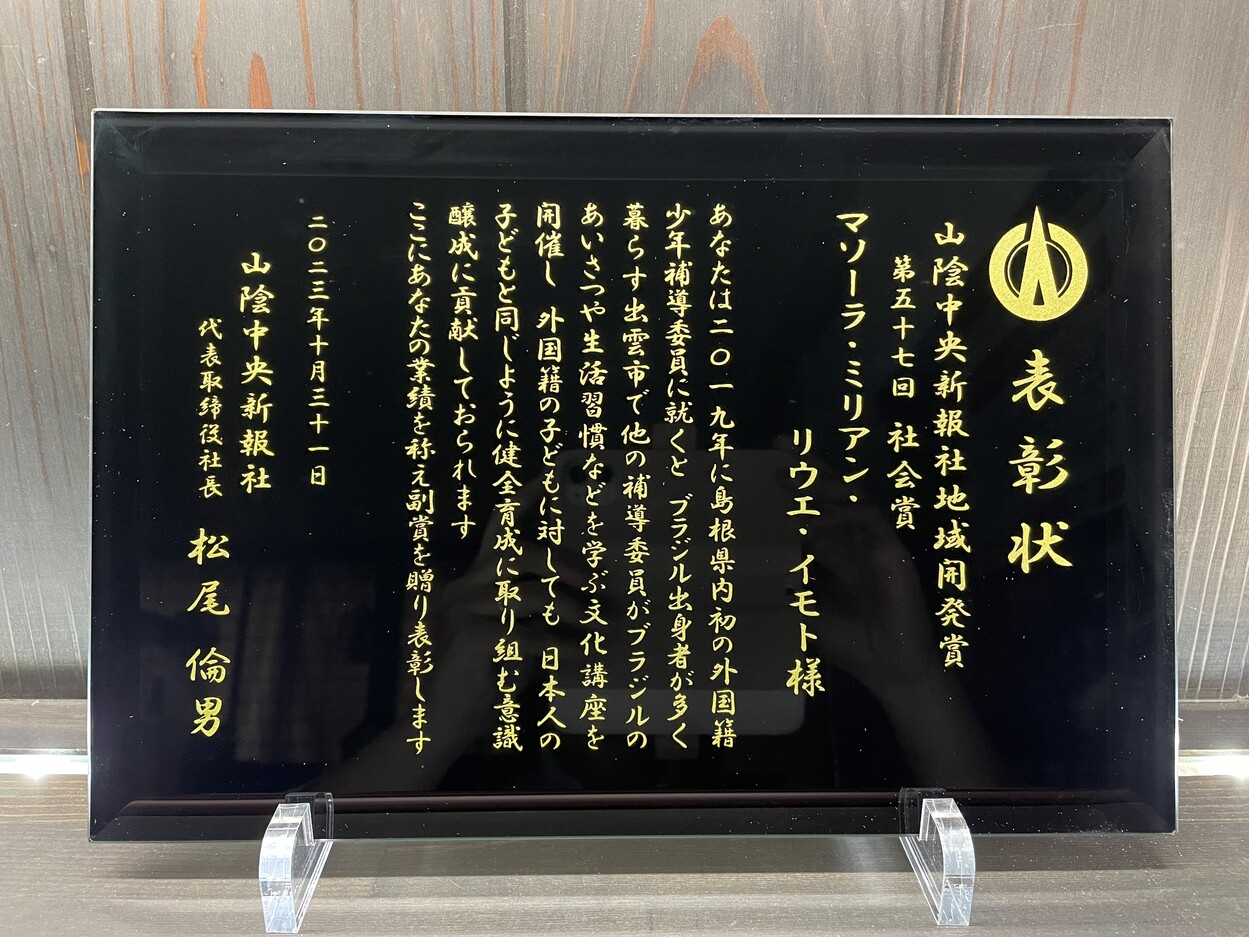 表彰状
山陰中央新報社地域開発賞
第五十七回 社会賞
マソーラ・ミリアン・
リウエ・イモト様
あなたは二〇一九年に島根県内初の外国籍
少年補導委員に就くと ブラジル出身者が多く
暮らす出雲市で他の補導委員がブラジルの
あいさつや生活習慣などを学ぶ文化講座を
開催し 外国籍の子どもに対しても 日本人の
子どもと同じように健全育成に取り組む意識
醸成に貢献しておられます
ここにあなたの業績を称え副賞を贈り表彰します
二〇二三年十月三十一日
山陰中央新報社
代表取締役社長 松尾倫男